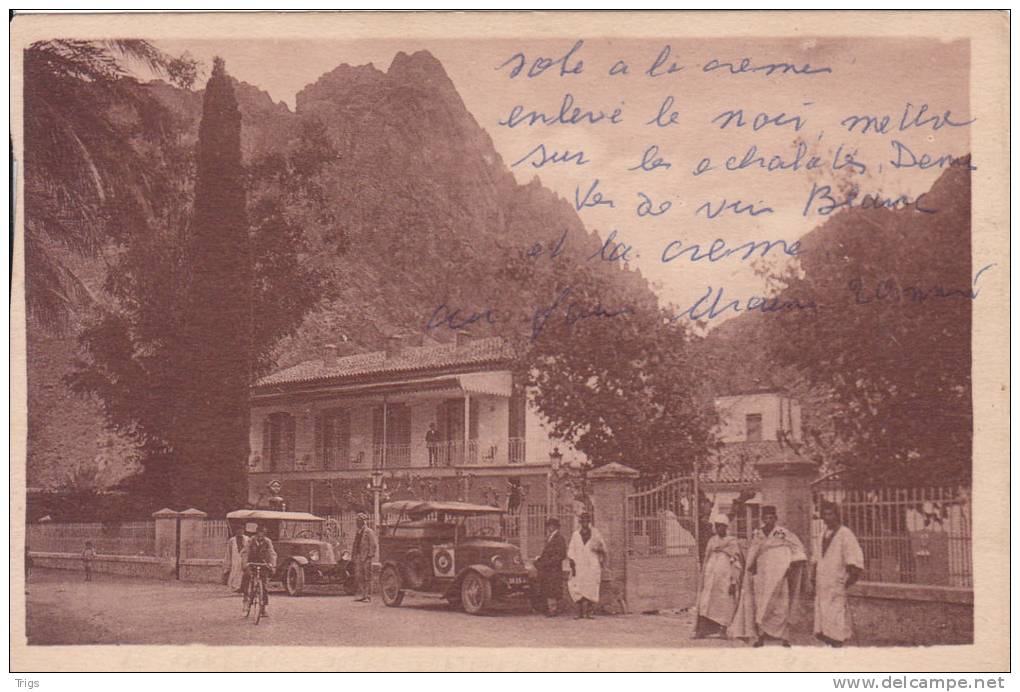 sole a la creme
enlevé le noir, mettre
sur les echalotes, Demi
Ver de vin Blanc
et la creme
au four 20 minu
Trigs
www.delcampe.net